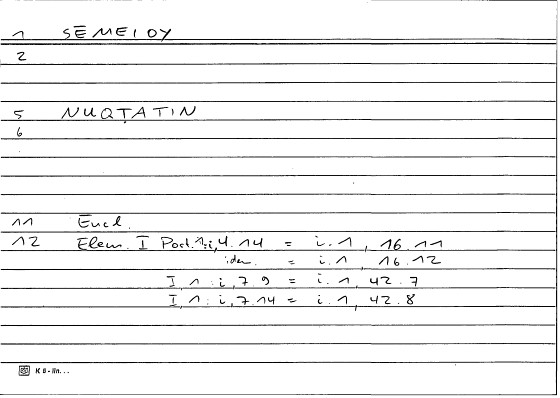 1 SĒMEIOY
2
5 NUQṬATIN
6
11 Eucl.
12 Elem. I Post. 1: i, 4.14 = i.1, 16.11
idem = i.1, 16.12
I, 1: i, 7.9 = i.1, 42.7
I, 1: i, 7.14 = i.1, 42.8
K 6 - lin...